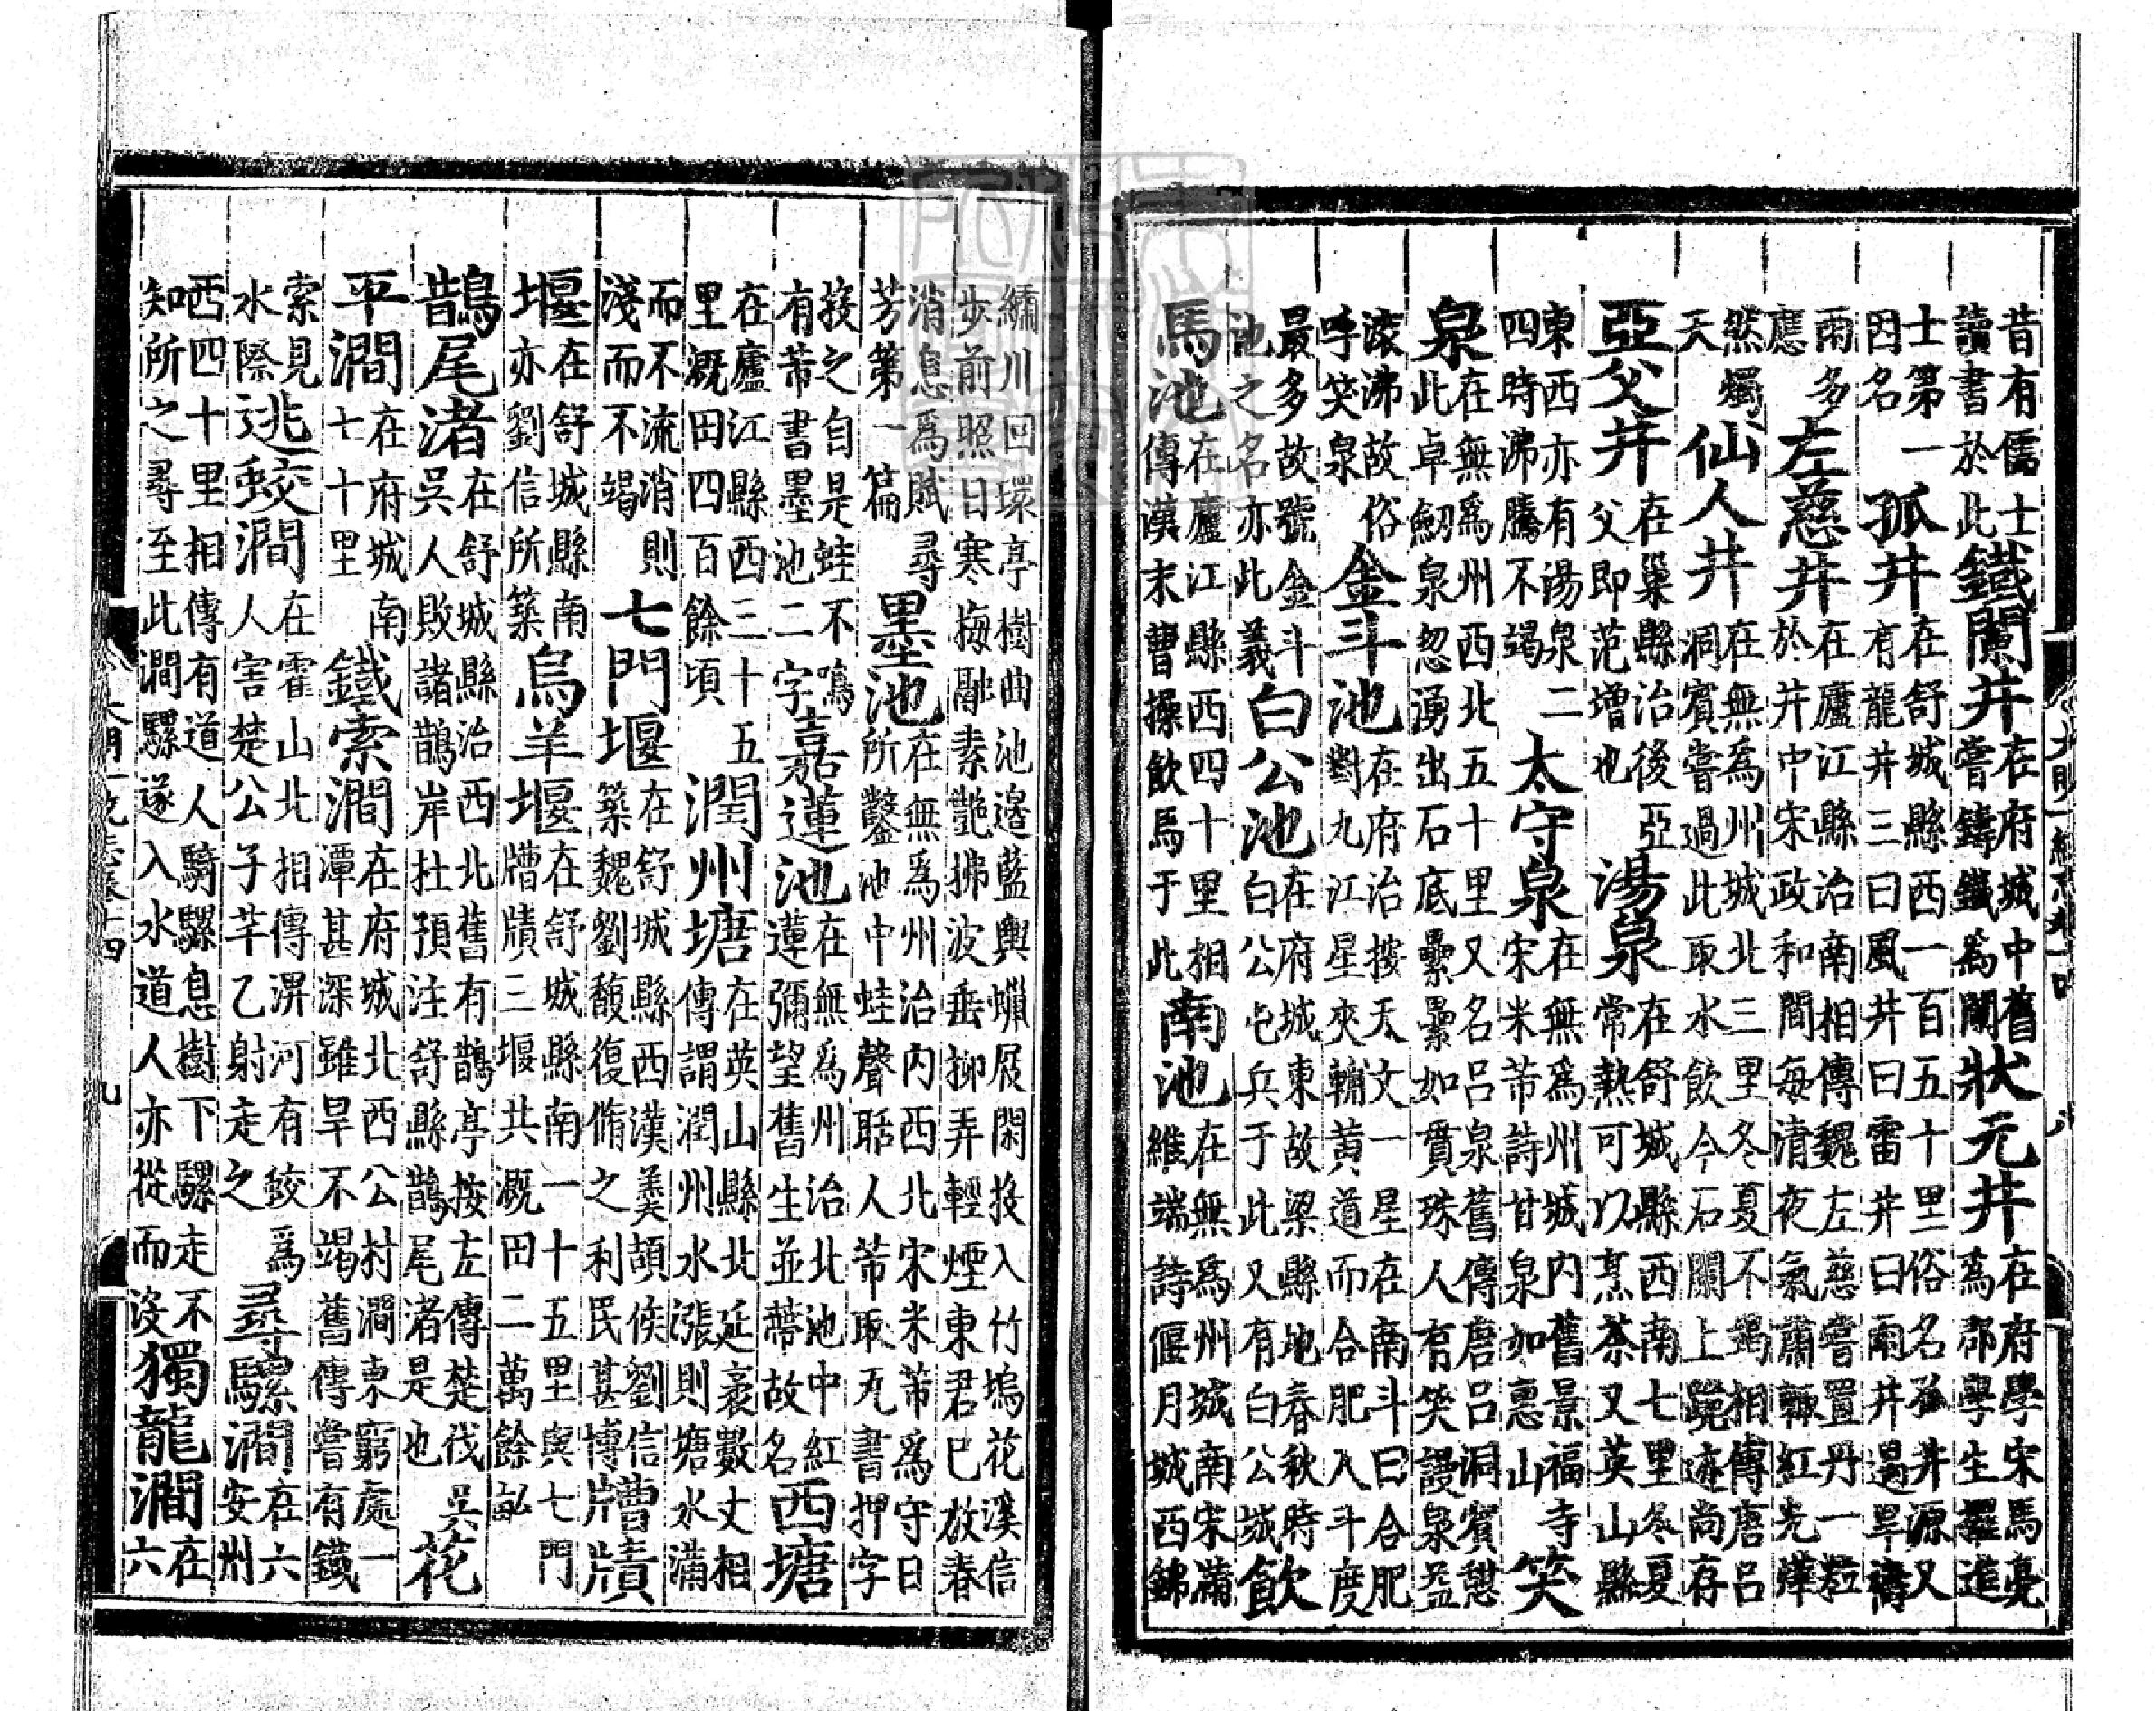 昔有儒士
讀書於此鐵闌井在府城中舊
嘗鑄鐵爲闌狀元井在府學宋馬亮
爲郡學生擢進
士第一
因名孤井在舒城縣西一百五十里俗名孤井源又
有龍井三曰風井曰雷井曰雨井遇旱禱
雨多
應左慈井在廬江縣治南相傳魏左慈嘗置丹一粒
於井中宋政和間每清夜氣肅輒紅光燁
然燭
天仙人井在無爲州城北三里冬夏不竭相傳唐呂
洞賓嘗過此取水飲今石闌上蹤迹尚存
亞父井在巢縣治後亞
父即范增也湯泉在舒城縣西南七里冬夏
常熱可以烹茶又英山縣
東西亦有湯泉二
四時沸騰不竭太守泉在無爲州城內舊景福寺
宋米芾詩甘泉如惠山笑
泉在無爲州西北五十里又名呂泉舊傳唐呂洞賓憇
此卓劒泉忽湧出石底纍纍如貫珠人有笑謾泉益
滚沸故俗
呼笑泉金斗池在府治按天文一星在南斗曰合肥
對九江星夾輔黄道而合肥入斗度
最多故號金斗
池之名亦此義白公池在府城東故梁縣地春秋時
白公屯兵于此又有白公城飲
馬池在廬江縣西四十里相
傳漢末曹操飲馬于此南池在無爲州城南宋滿
維端詩偃月城西錦
繡川回環亭樹曲池邊藍輿蠟屐閑投入竹塢花溪信
步前照日寒梅融素艷拂波垂柳弄輕煙東君已放春
消息爲賦尋
芳第一篇墨池在無爲州治内西北宋米芾爲守日
所鑿池中蛙聲聒人芾取瓦書押字
投之自是蛙不鳴
有芾書墨池二字嘉蓮池在無爲州治北池中紅
蓮彌望舊生並蔕故名西塘
在廬江縣西三十五
里溉田四百餘頃潤州塘在英山縣北延袤數丈相
傳謂潤州水漲則塘水滿
而不流消則
淺而不竭七門堰在舒城縣西漢羹頡侯劉信
築魏劉馥復脩之利民甚博𤗊牘
堰在舒城縣南
亦劉信所築烏羊堰在舒城縣南一十五里與七門
𤗊牘三堰共溉田二萬餘畆
鵲尾渚在舒城縣治西北舊有鵲亭按左傳楚伐吳
吳人敗諸鵲岸杜預注舒縣鵲尾渚是也花
平澗在府城南
七十里鐵索澗在府城北西公村澗東窮處一
潭甚深雖旱不竭舊傳嘗有鐵
索見
水際逃蛟澗在霍山北相傳淠河有蛟爲
人害楚公子芊乙射走之尋騾澗在六
安州
西四十里相傳有道人騎騾息樹下騾走不
知所之尋至此澗騾遂入水道人亦從而没獨龍澗在
六
大明一統志卷十四
八
大明一統志卷十四
九